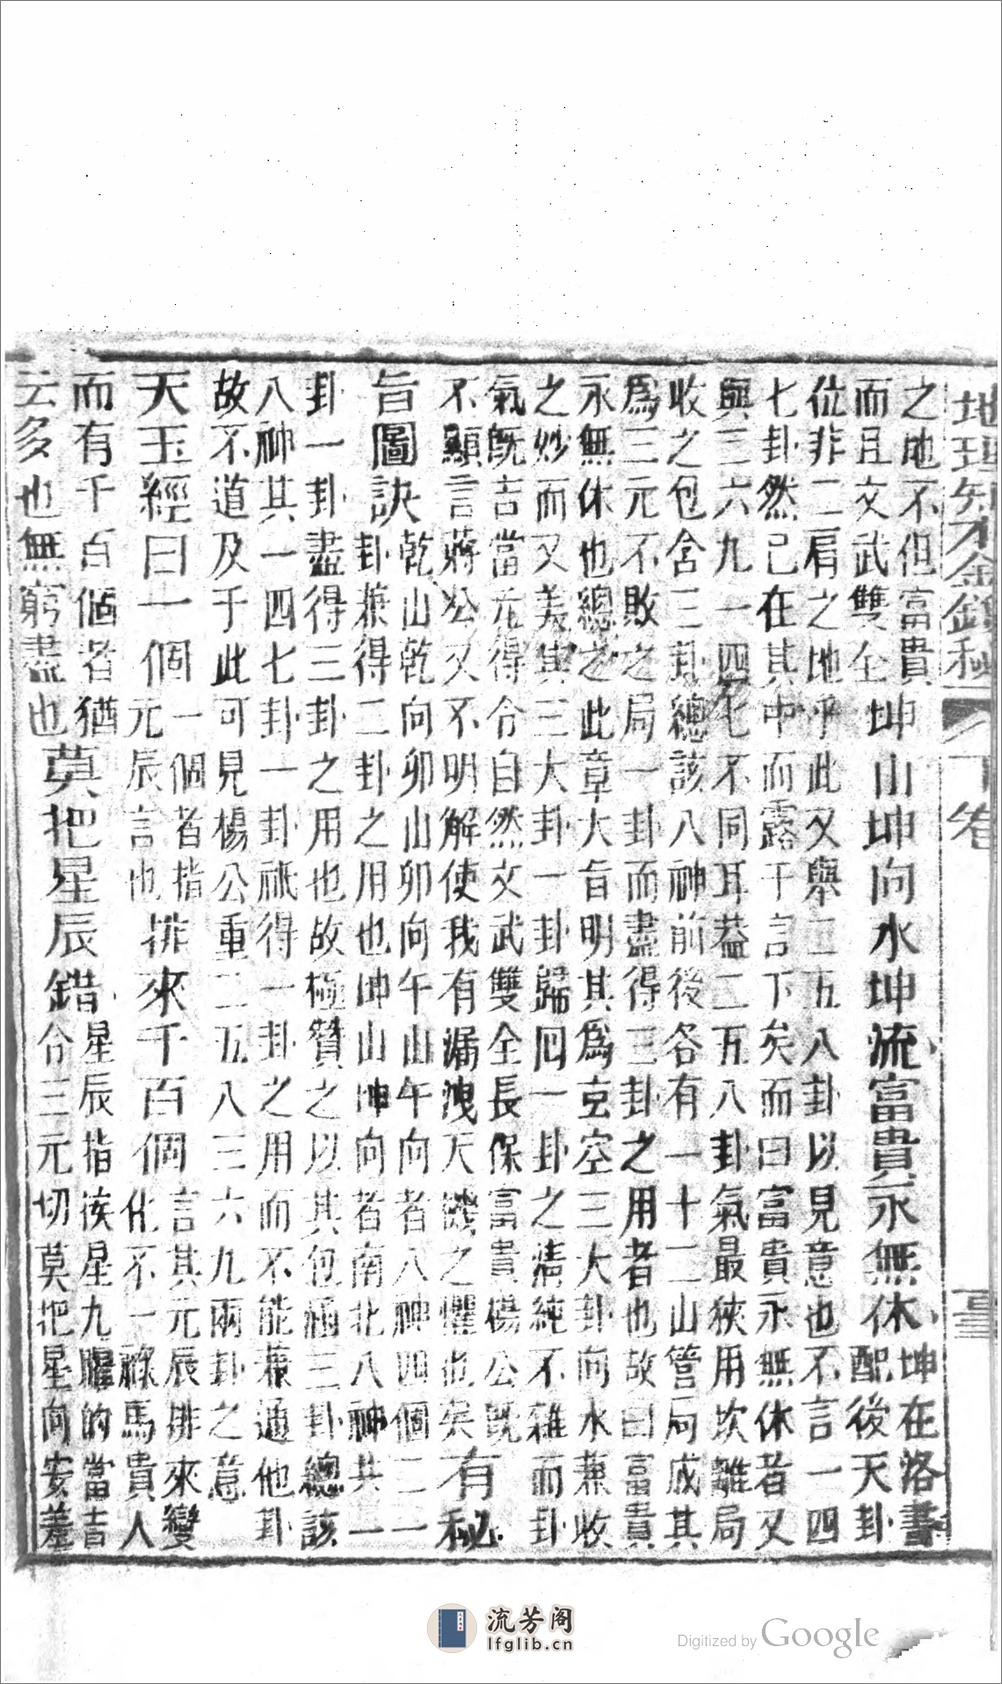 地理知本金鎖秘 下卷
之地不但富貴
而且文武雙全
坤山坤向水坤流富貴永無休
坤在洛書
配後天卦
位非二肩之地乎此又舉二五八卦以見意也不言一四
七卦然已在其中而露于言下矣而曰富貴永無休者又
與三六九一四七不同耳蓋二五八卦氣最狹用坎離局
收之包含三卦總該八神前後各有一十二山管局成其
為三元不敗之局一卦而盡得三卦之用者也故曰富貴
永無休也總之此章大旨明其為玄空三大卦向水兼收
之妙而又美其三大卦一卦歸回一卦之清純不雜而卦
氣既吉當元得令自然文武雙全長保富貴楊公既
不顯言蔣公又不明解使我有漏洩天機之懼也矣
有秘
旨圖訣
乾山乾向卯山卯向午山午向者八神四個二一
卦兼得二卦之用也坤山坤向者南北八神共一
卦一卦盡得三卦之用也故極贊之以其包涵三卦總該
八神其一四七卦一卦祇得一卦之用而不能兼通他卦
故不道及于此可見楊公重二五八三六九兩卦之意
天玉經曰一個
一個者指
元辰言也
排來千百個
言其元辰排來變
化不一祿馬貴人
而有千百個者猶
云多也無窮盡也
莫把星辰錯
星辰指挨星九曜的當吉
合三元切莫把星向安差
流芳阁
lfglib.cn
Digitized by Google